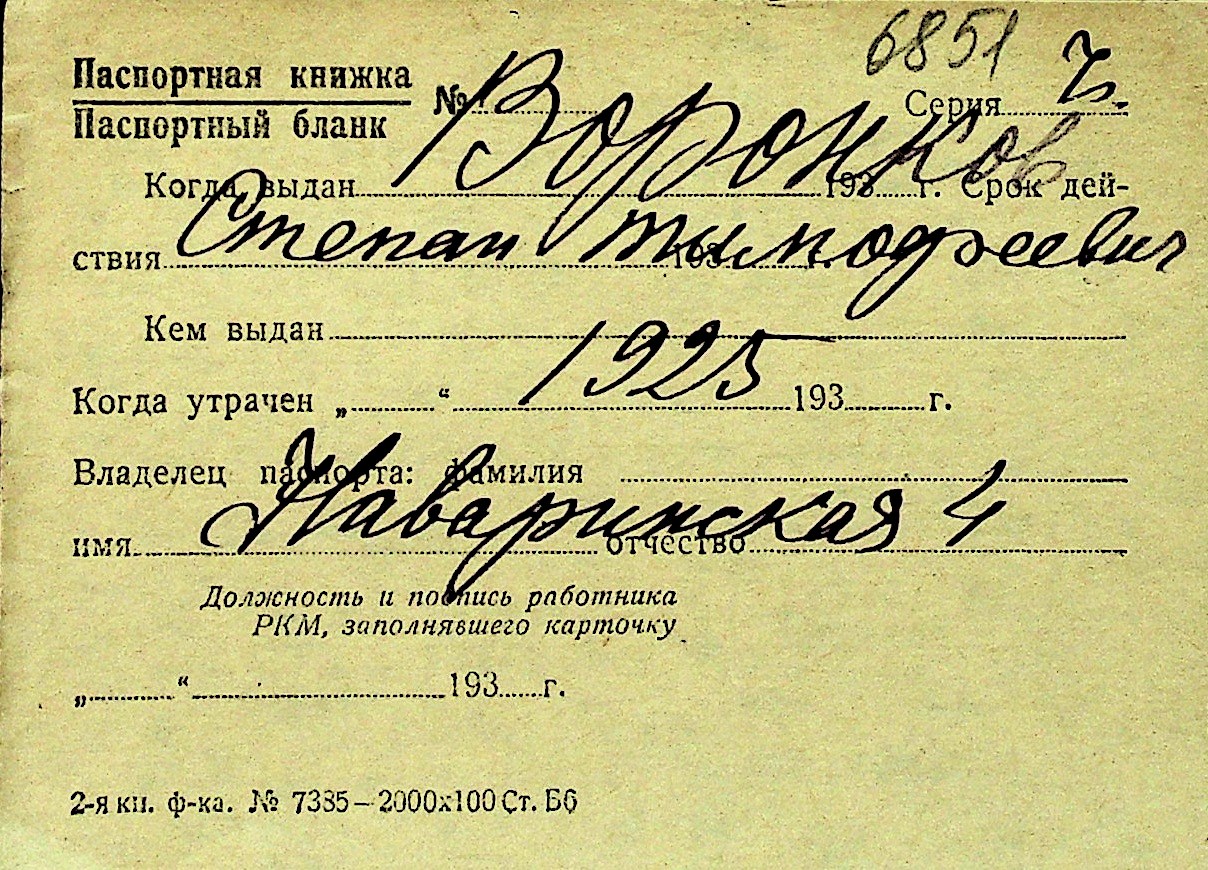 6851 ч.
Паспортная книжка
Паспортный бланк
№ Серия
Воронков
Когда выдан 193 г. Срок дей-
ствия 193 г.
Степан Тимофеевич
Кем выдан
1925
Когда утрачен „ “ 193 г.
Владелец паспорта: фамилия
Наваринская 4
имя отчество
Должность и подпись работника
РКМ, заполнявшего карточку
„ “ 193 г.
2-я кн. ф-ка. № 7385—2000х100 Ст. Бб